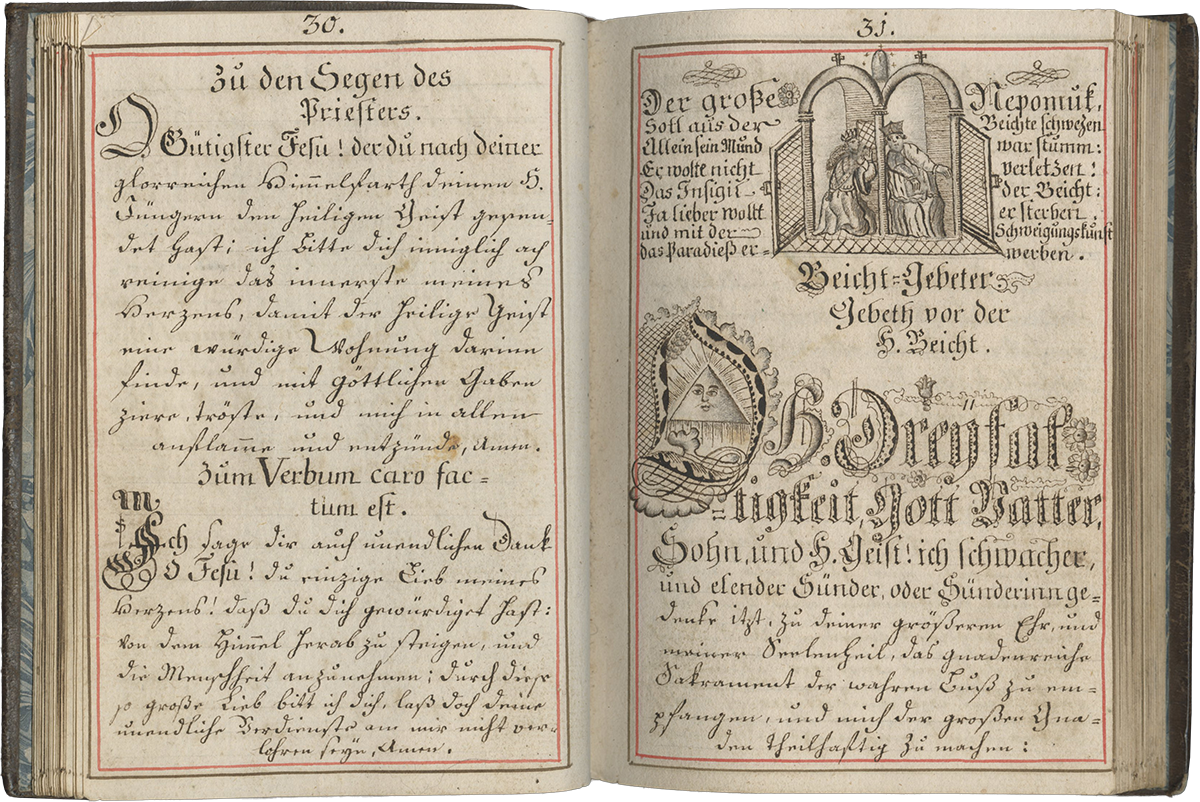 30.
Zu den Segen des
Priesters.
O Gütigster Jesu! der du nach deiner
glorreichen Himmelfarth deinen H.
Jüngern den Heiligen Geist gesen-
det hast; ich bitte dich inniglich ach
reinige das innerste meines
Herzens, damit der Heilige Geist
eine würdige Wohnung darinn
finde, und mit göttlichen Gaben
ziere, tröste, und mich in allen
anflamme und entzünde, Amen.
Zum Verbum caro fac=
tum est.
Ich sage dir auch unendlichen Dank
O Jesu! du einzige Lieb meines
Herzens! daß du dich gewürdiget hast:
von dem Himmel herab zu steigen, und
die Menschheit anzunehmen; durch diese
so große Lieb bitt ich dich, laß doch deine
unendliche Verdienste an mir nicht ver-
lohren seyn, Amen.
31.
Der große Nepomuk,
Sott aus der Beichte schwezen
Allein sein Mund war stumm:
Er wolte nicht verletzen!
Das Insigil der Beicht:
Ja lieber wollt er sterben,
und mit der Schweigungskunst
das Paradieß er= werben.
Beicht=Gebeter
Gebeth vor der
H. Beicht.
O H. Dreyfal
=tigkeit, Gott Vatter,
Sohn, und H. Geist! ich schwacher,
und elender Sünder, oder Sünderinn ge=
denke itzt, zu deiner größeren Ehr, und
meiner Seelenheil, das gnadenreiche
Sakrament der wahren Buß zu em=
pfangen, und mich der großen Gna=
den theilhaftig zu machen: